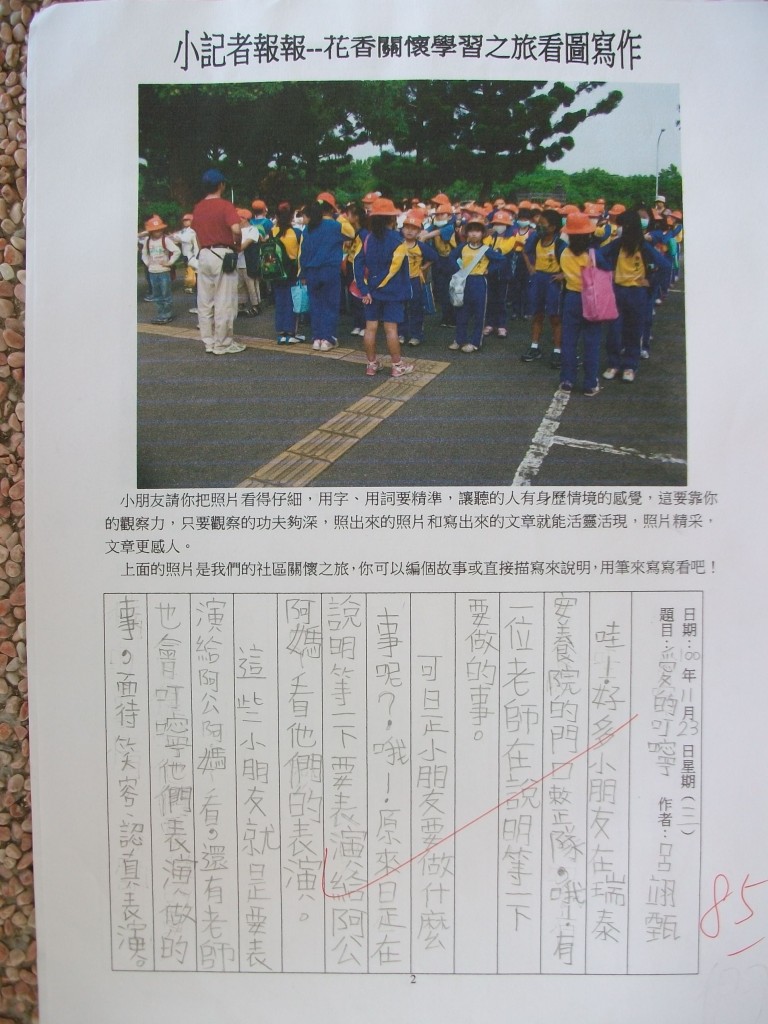 小記者報報--花香關懷學習之旅看圖寫作
小朋友請你把照片看得仔細，用字、用詞要精準，讓聽的人有身歷情境的感覺，這要靠你
的觀察力，只要觀察的功夫夠深，照出來的照片和寫出來的文章就能活靈活現，照片精采，
文章更感人。
上面的照片是我們的社區關懷之旅，你可以編個故事或直接描寫來說明，用筆來寫寫看吧！
日期：100年11月23日星期（三）
題目：愛的叮嚀 作者：呂翊甄
哇！好多小朋友在瑞泰
安養院的門口整隊，哦！有
一位老師在說明等一下
要做的事。
可是小朋友要做什麼
事呢？哦！原來是在
說明等一下要表演給阿公
阿媽看他們的表演。
這些小朋友就是要表
演給阿公阿媽看，還有老師
也會叮嚀他們表演做的
事，面待笑容、認真表演。
85
2